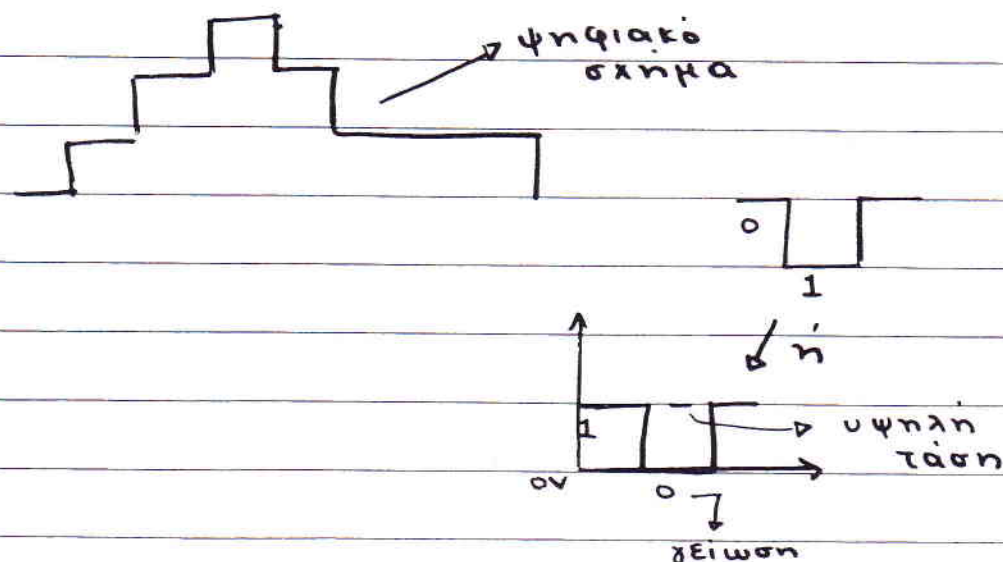 ψηφιακό
σχήμα
0
1
ή
1
υψηλή
τάση
0V
0
γείωση